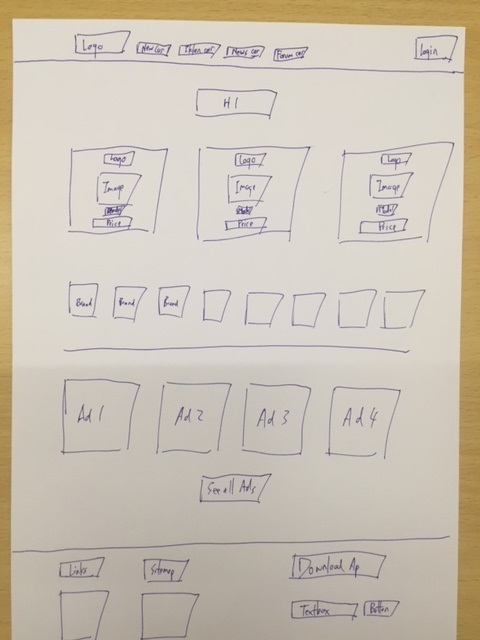 Logo New car Token car News car Forum car Login
H1
Logo Logo Logo
Image Image Image
Price Price Price
Brand Brand Brand
Ad 1 Ad 2 Ad 3 Ad 4
See all Ads
Links Sitemap Download Ap
Textbox Button